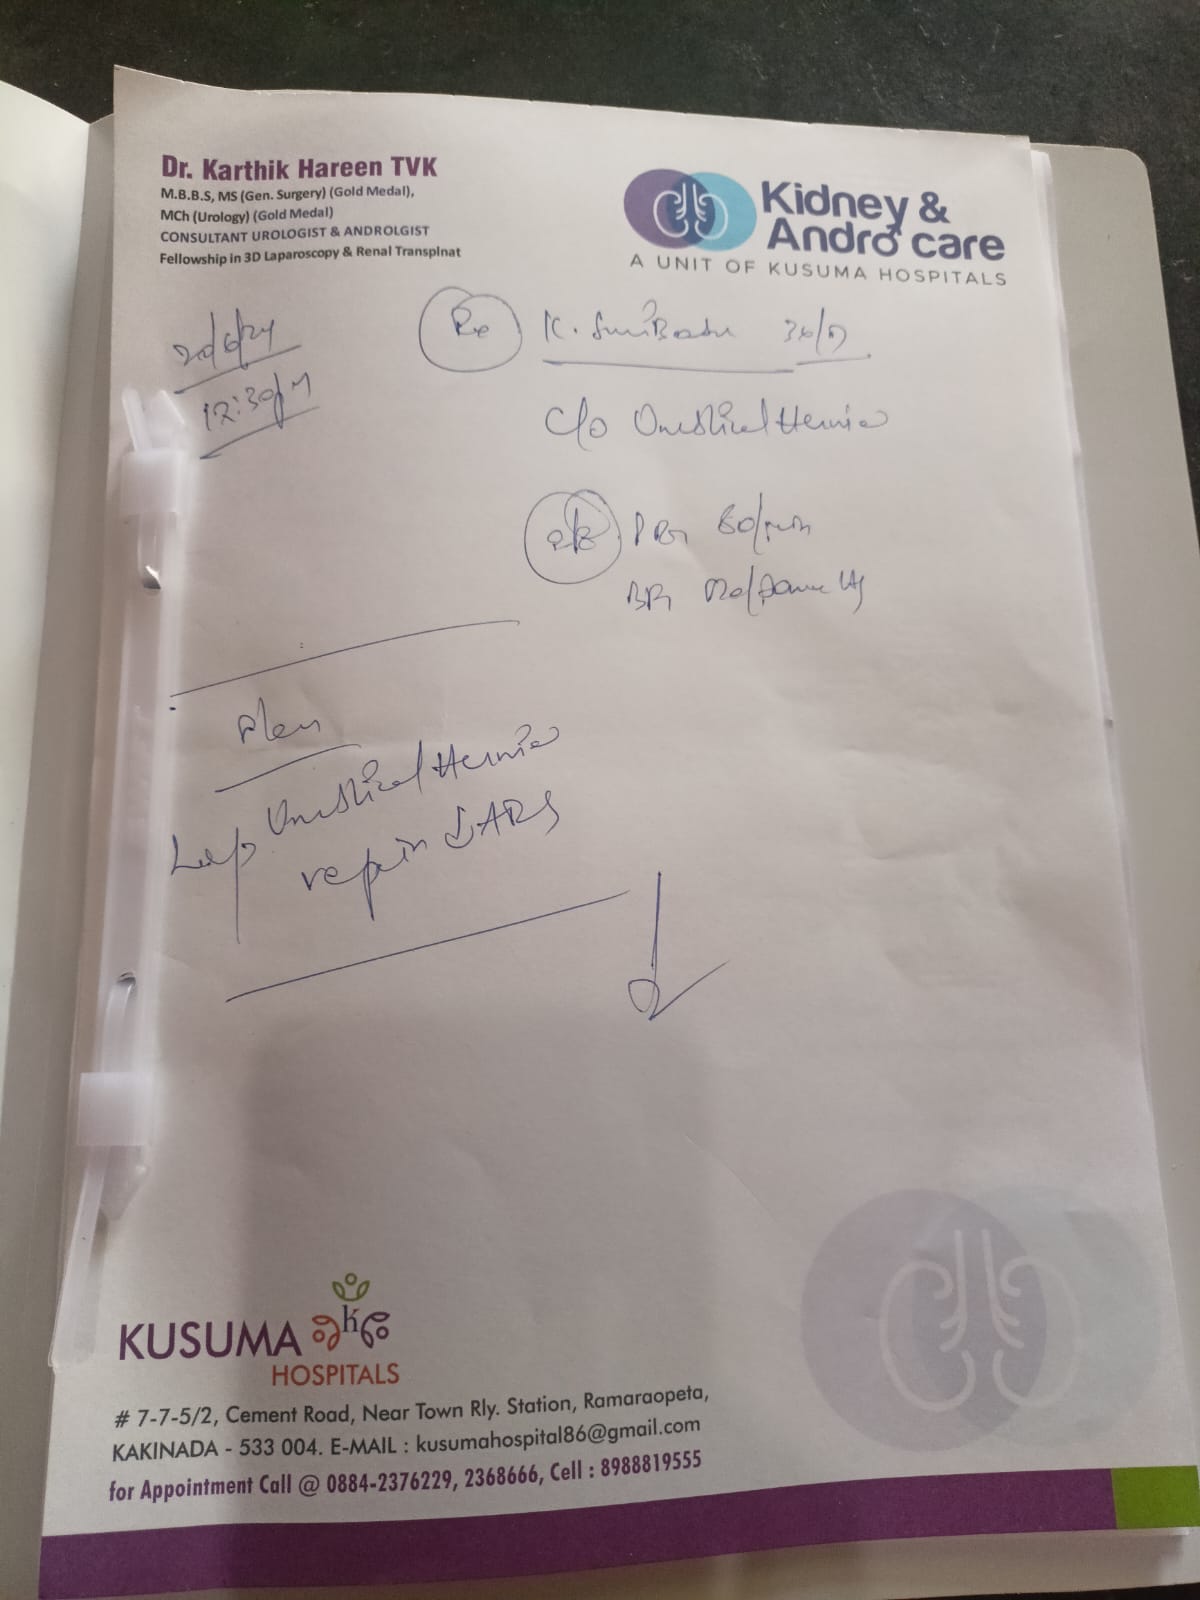 Dr. Karthik Hareen TVK
M.B.B.S, MS (Gen. Surgery) (Gold Medal),
MCh (Urology) (Gold Medal)
CONSULTANT UROLOGIST & ANDROLGIST
Fellowship in 3D Laparoscopy & Renal Transplnat
Kidney &
Andro care
A UNIT OF KUSUMA HOSPITALS
20/6/24
12:30pm
K.
C/o Umbilical Hernia
PR 80/min
BP
Plan
Lap Umbilical Hernia
repair
KUSUMA
HOSPITALS
# 7-7-5/2, Cement Road, Near Town Rly. Station, Ramaraopeta,
KAKINADA - 533 004. E-MAIL : kusumahospital86@gmail.com
for Appointment Call @ 0884-2376229, 2368666, Cell : 8988819555